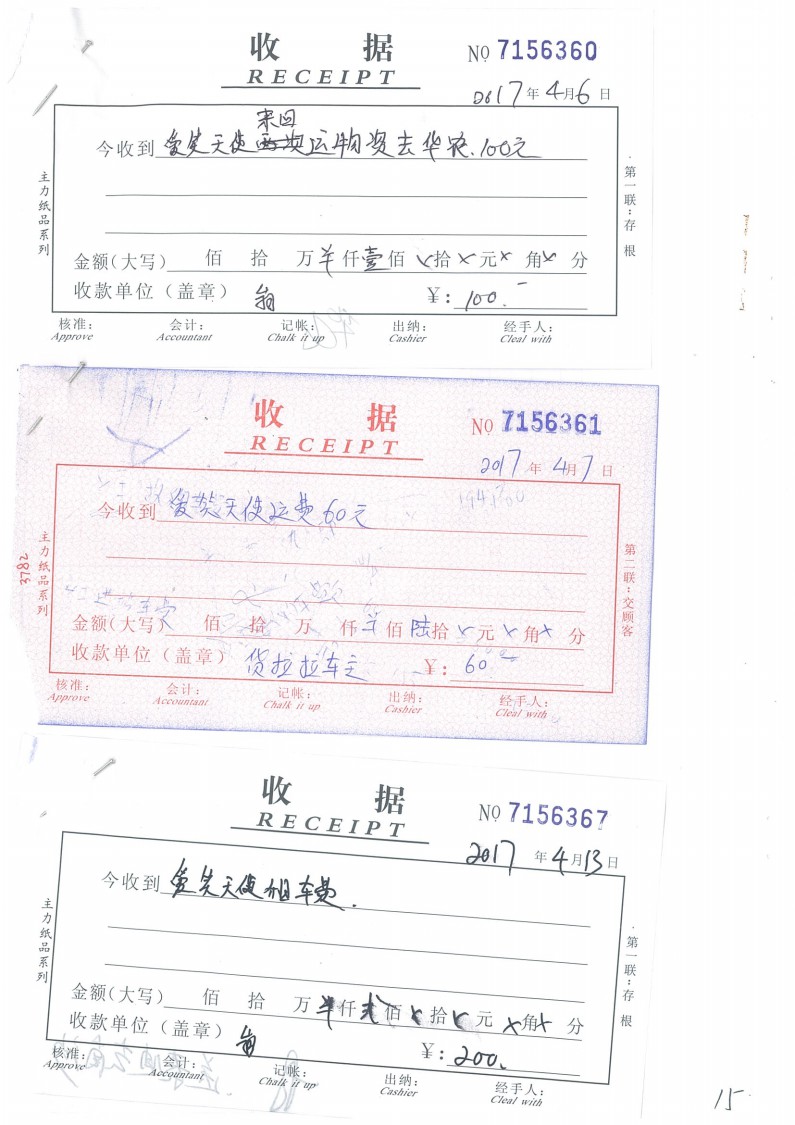 收 据 NO 7156360
RECEIPT
2017年4月6日
来回
今收到 爱笑天使运物资去华农.100元
金额(大写) 佰 拾 万¥仟壹佰×拾×元×角×分
收款单位(盖章) ¥: 100.-
核准: 会计: 记帐: 出纳: 经手人:
Approve Accountant Chalk it up Cashier Cleal with
主力纸品系列
第一联:存根
收 据 NO 7156361
RECEIPT
2017年4月7日
今收到 爱笑天使运费60元
金额(大写) 佰 拾 万 仟¥佰陆拾×元×角×分
收款单位(盖章) 货拉拉车主 ¥: 60.
核准: 会计: 记帐: 出纳: 经手人:
Approve Accountant Chalk it up Cashier Cleal with
3782
主力纸品系列
第二联:交顾客
收 据 NO 7156367
RECEIPT
2017年4月13日
今收到 爱笑天使租车费.
金额(大写) 佰 拾 万¥仟贰佰×拾×元×角×分
收款单位(盖章) ¥: 200.
核准: 会计: 记帐: 出纳: 经手人:
Approve Accountant Chalk it up Cashier Cleal with
主力纸品系列
第一联:存根
15